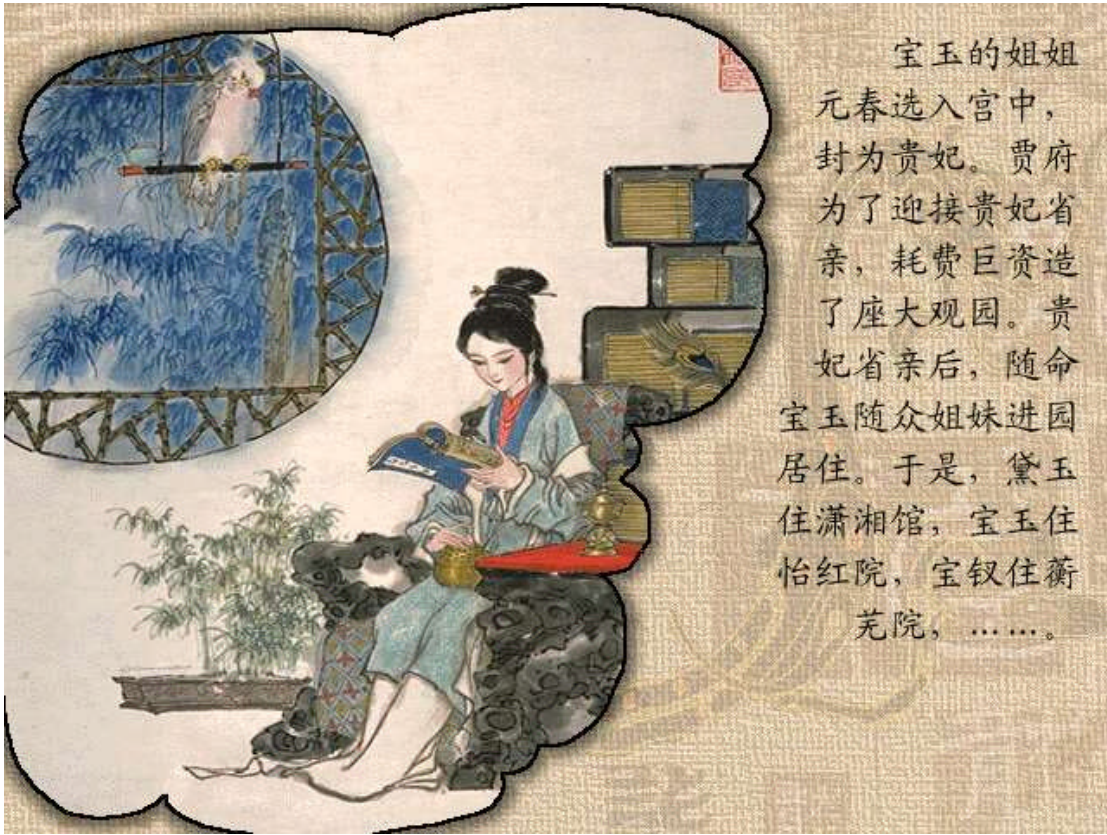 宝玉的姐姐
元春选入宫中，
封为贵妃。贾府
为了迎接贵妃省
亲，耗费巨资造
了座大观园。贵
妃省亲后，随命
宝玉随众姐妹进园
居住。于是，黛玉
住潇湘馆，宝玉住
怡红院，宝钗住蘅
芜院，……。